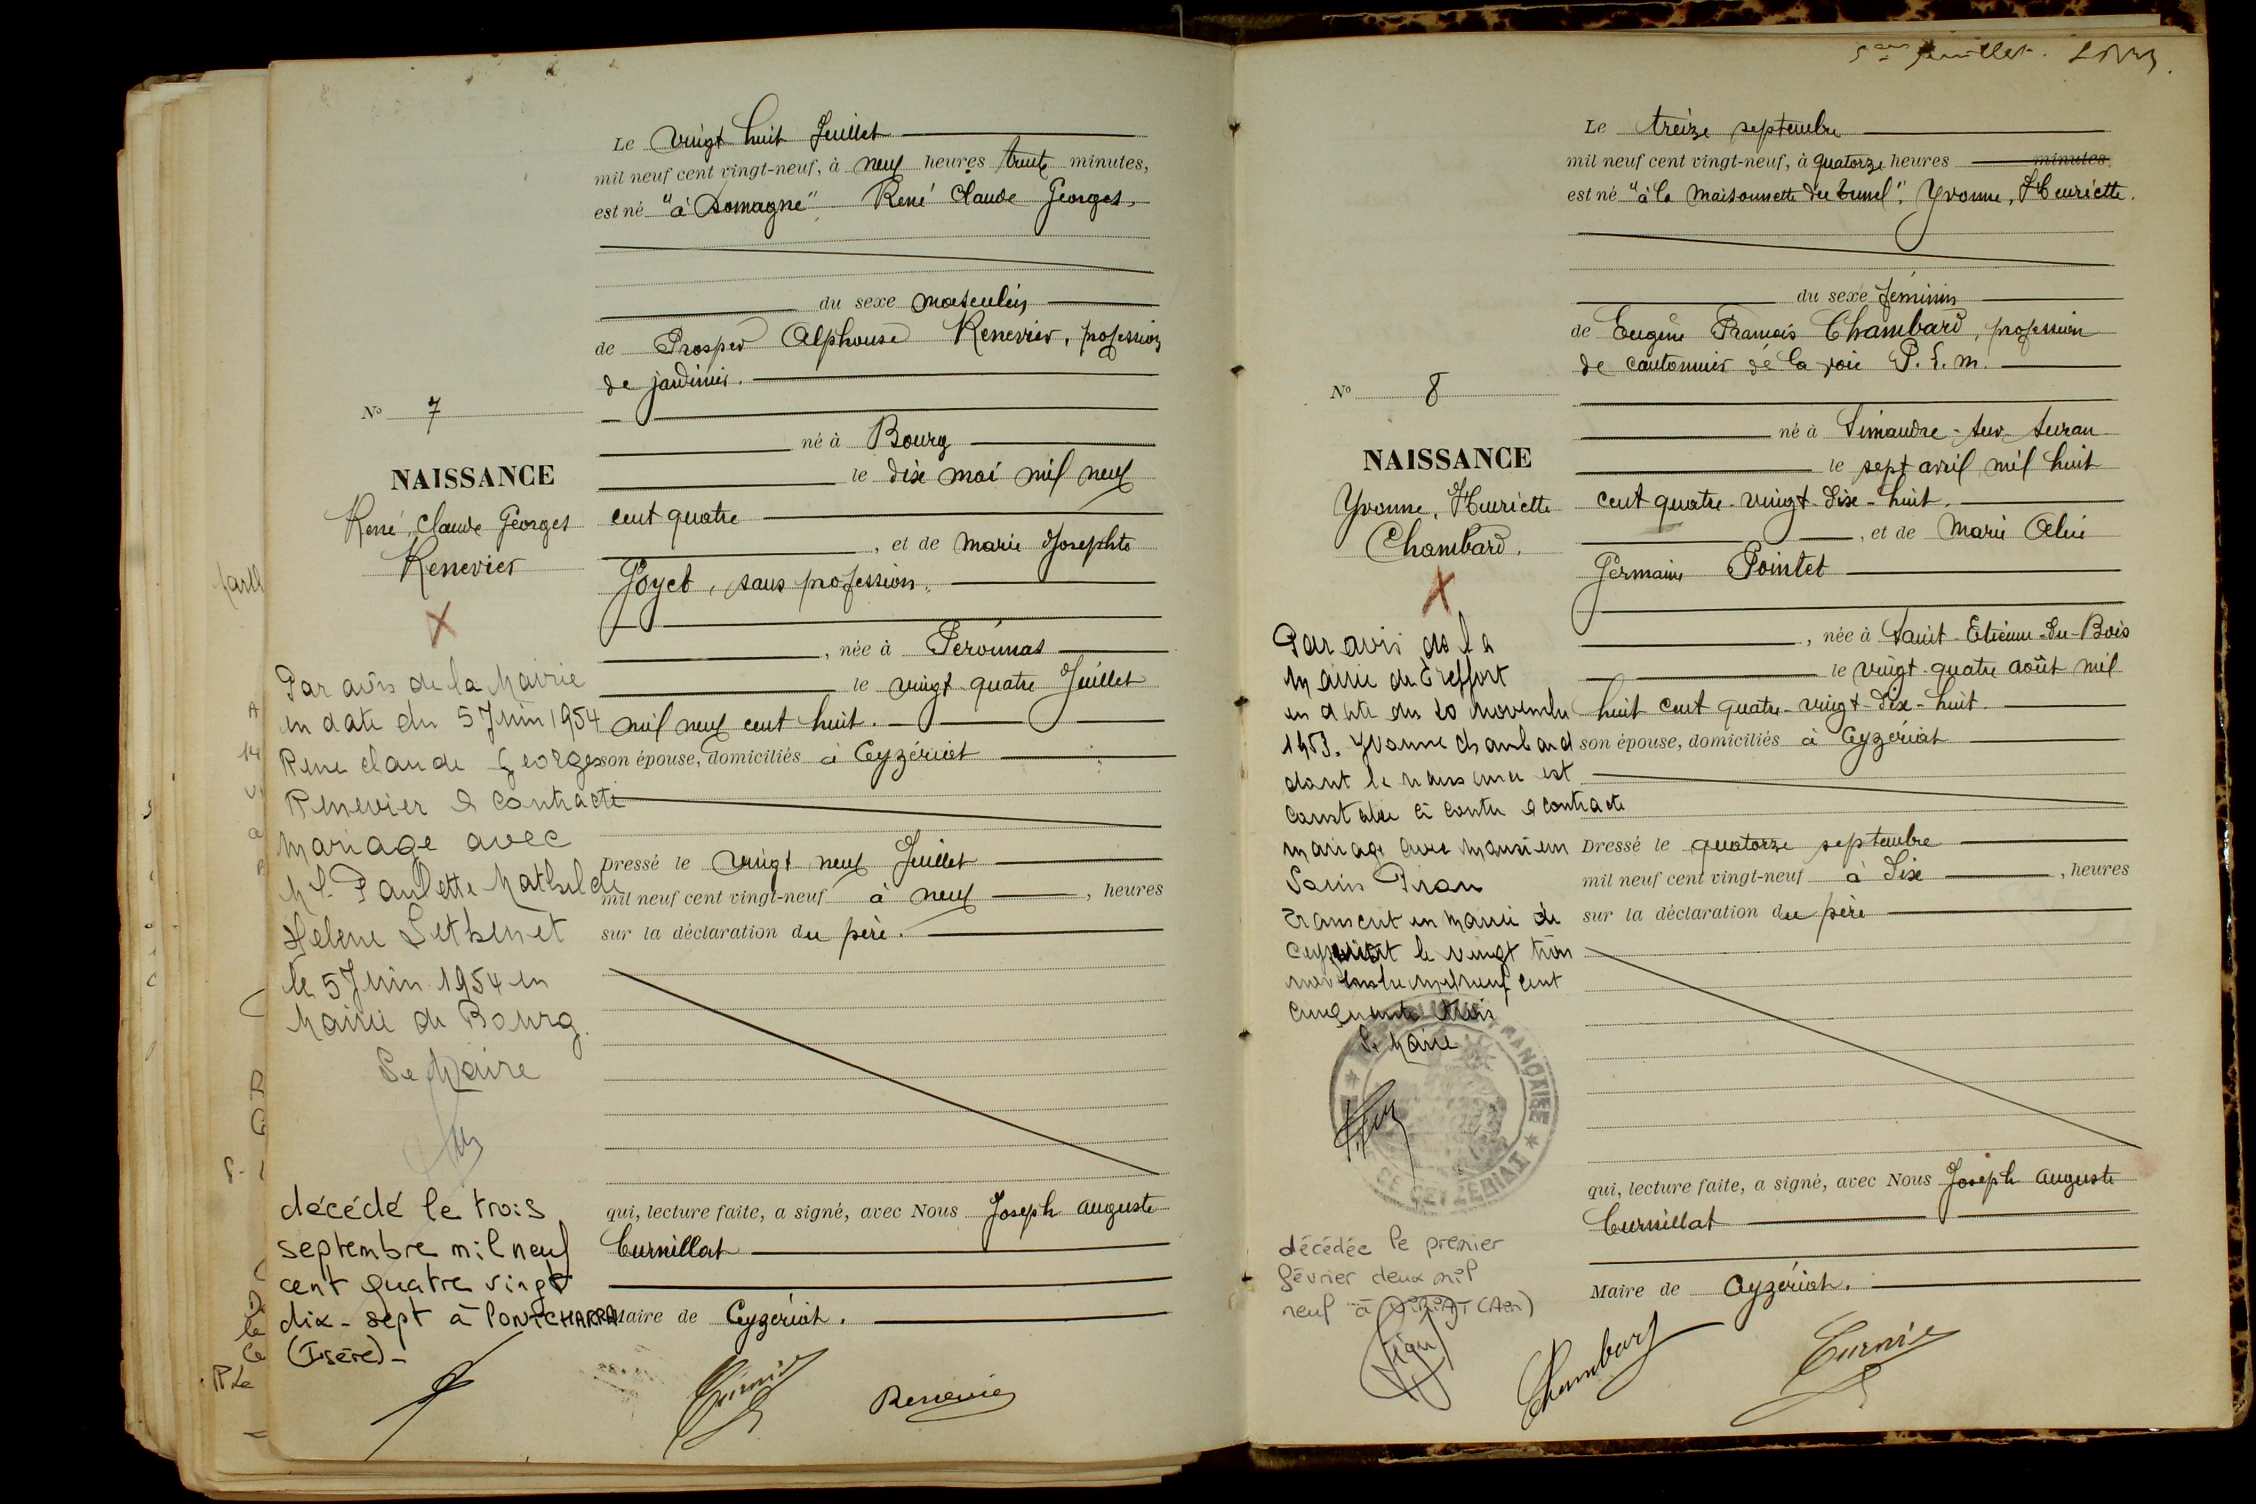 Le vingt huit Juillet
mil neuf cent vingt-neuf, à neuf heures trente minutes,
est né "à Domagne" René Claude Georges,
du sexe masculin
de Prosper Alphonse Renevier, profession
de jardinier.
N° 7
né à Bourg
NAISSANCE
le dix mai mil neuf
René, Claude Georges
cent quatre
Renevier
, et de Marie Josephte
Goyet, sans profession.
, née à Péronnas
le vingt-quatre Juillet
mil neuf cent huit.
son épouse, domiciliés à Ceyzériat
Dressé le vingt neuf Juillet
mil neuf cent vingt-neuf à neuf , heures
sur la déclaration du père.
qui, lecture faite, a signé, avec Nous Joseph Auguste
Curnillat
Maire de Ceyzériat.
Par avis de la Mairie
en date du 5 Juin 1954
Rene claude Georges
Renevier a contracté
mariage avec
Mlle Paulette Mathilde
Helene
le 5 Juin 1954 en
Mairie de Bourg.
Le Maire
décédé le trois
septembre mil neuf
cent quatre vingt
dix-sept à PONTCHARRA
(Isère)-
Renevier
5eme feuillet.
Le treize septembre
mil neuf cent vingt-neuf, à quatorze heures minutes,
est né "à la Maisonnette du tunel", Yvonne, Henriette.
du sexe féminin
de Eugène François Chambard, profession
de cantonnier de la voie P. L. M.
N° 8
né à Simandre-sur-Suran
NAISSANCE
le sept avril mil huit
Yvonne, Henriette
cent quatre-vingt-dix-huit.
Chambard.
, et de Marie
Germaine Pointet
, née à Saint-Etienne-du-Bois
le vingt-quatre août mil
huit cent quatre-vingt-dix-huit.
son épouse, domiciliés à Ceyzériat
Dressé le quatorze septembre
mil neuf cent vingt-neuf à dix , heures
sur la déclaration du père
qui, lecture faite, a signé, avec Nous Joseph Auguste
Curnillat
Maire de Ceyzériat.
Par avis de la
Mairie de Treffort
en date du 20 Novembre
1953. Yvonne Chambard
dont la naissance est
constatée ci contre a contracté
mariage avec Monsieur
transcrit en Mairie de
Ceyzériat le vingt trois
novembre mil neuf cent
cinquante trois
Le Maire
RÉPUBLIQUE FRANÇAISE
DE CEYZÉRIAT
décédée le premier
février deux mil
neuf à VIRIAT (Ain)
Chambard